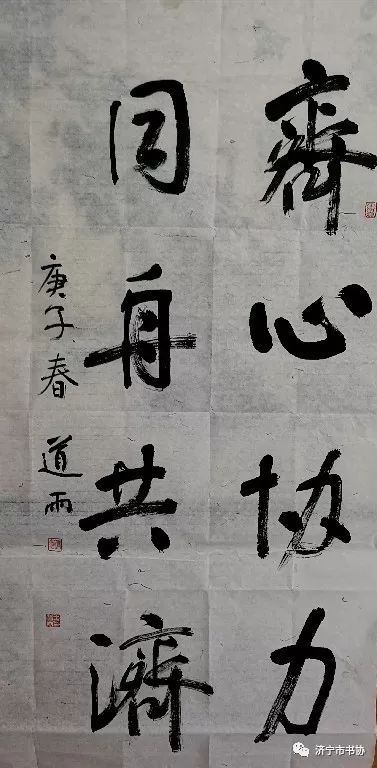 齊心协力
同舟共濟
庚子春 道雨
济宁市书协